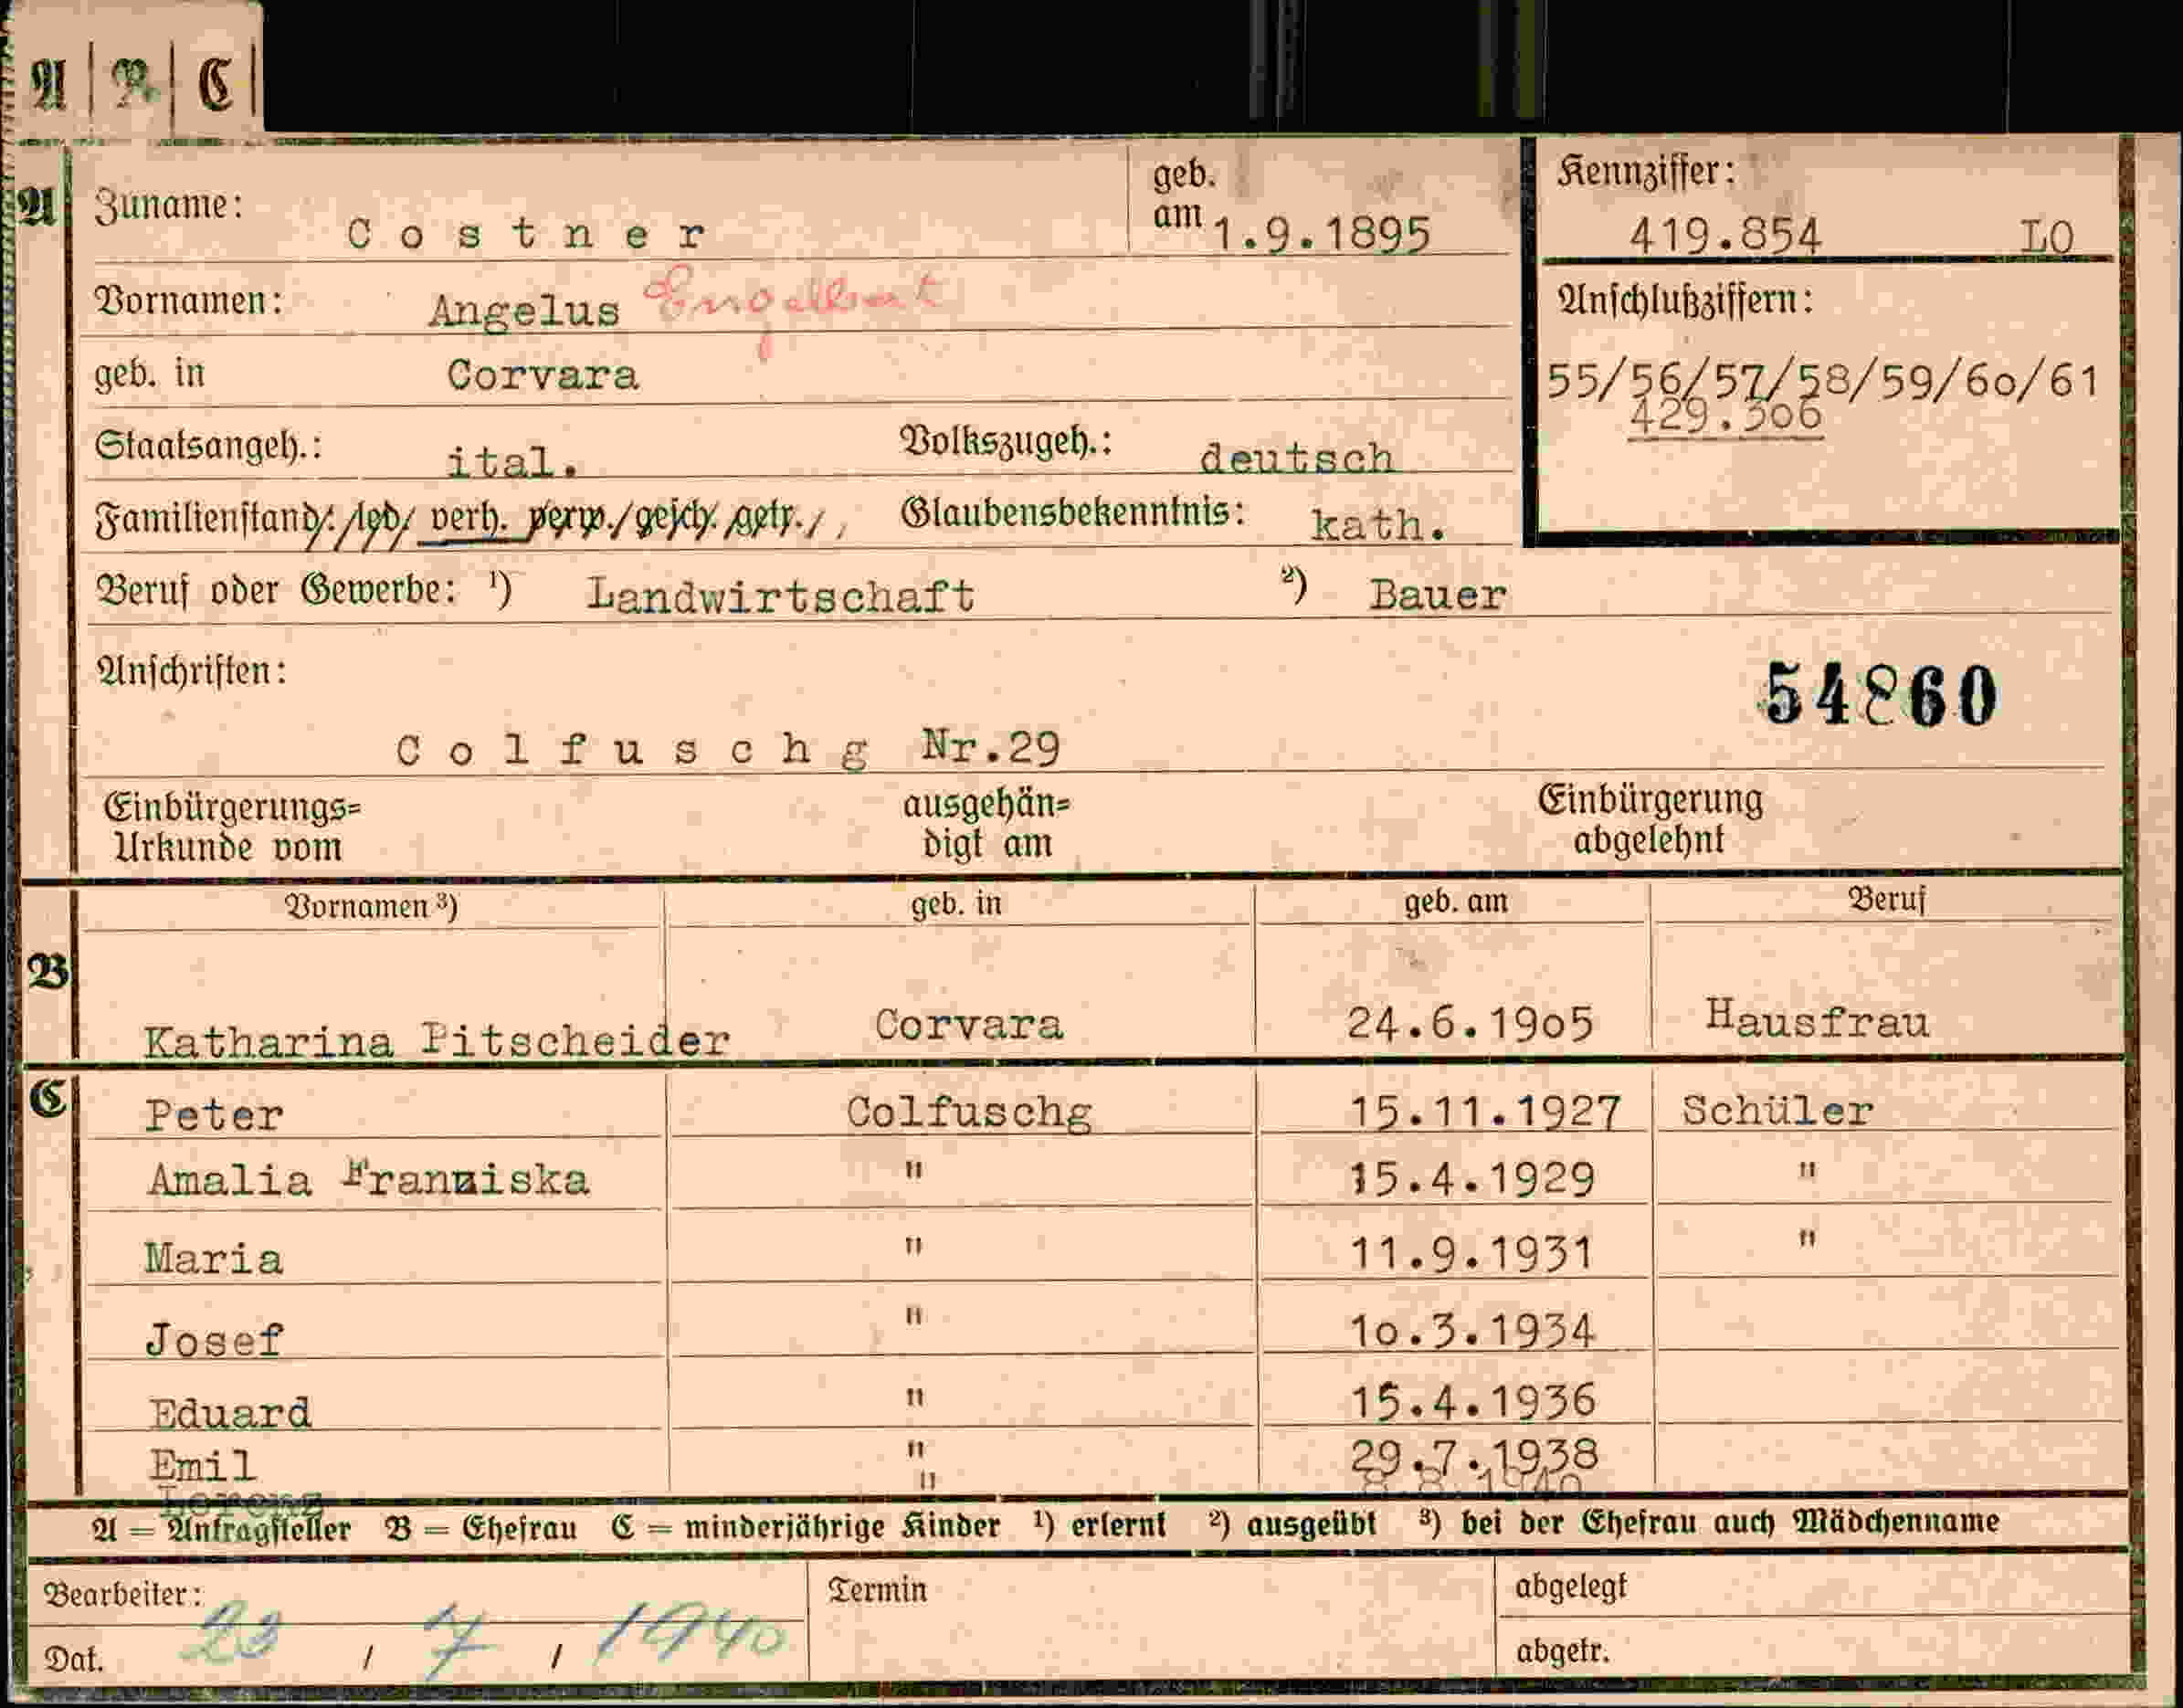 A | B | C |
A Zuname: Costner geb. am 1.9.1895
Kennziffer: 419.854 LO
Vornamen: Angelus Engelbert
Anschlußziffern:
55/56/57/58/59/60/61
429.306
geb. in Corvara
Staatsangeh.: ital. Volkszugeh.: deutsch
Familienstand: led/ verh. verw./gesch. getr./ Glaubensbekenntnis: kath.
Beruf oder Gewerbe: ¹) Landwirtschaft ²) Bauer
Anschriften:
54860
Colfuschg Nr.29
Einbürgerungs= ausgehän= Einbürgerung
Urkunde vom digt am abgelehnt
Vornamen ³) geb. in geb. am Beruf
B Katharina Pitscheider Corvara 24.6.1905 Hausfrau
C Peter Colfuschg 15.11.1927 Schüler
Amalia Franziska " 15.4.1929 "
Maria " 11.9.1931 "
Josef " 10.3.1934
Eduard " 15.4.1936
Emil " 29.7.1938
Lorenz " 8.8.1940
A = Antragsteller B = Ehefrau C = minderjährige Kinder ¹) erlernt ²) ausgeübt ³) bei der Ehefrau auch Mädchenname
Bearbeiter: Termin abgelegt
Dat. 23 / 7 / 1940 abgetr.